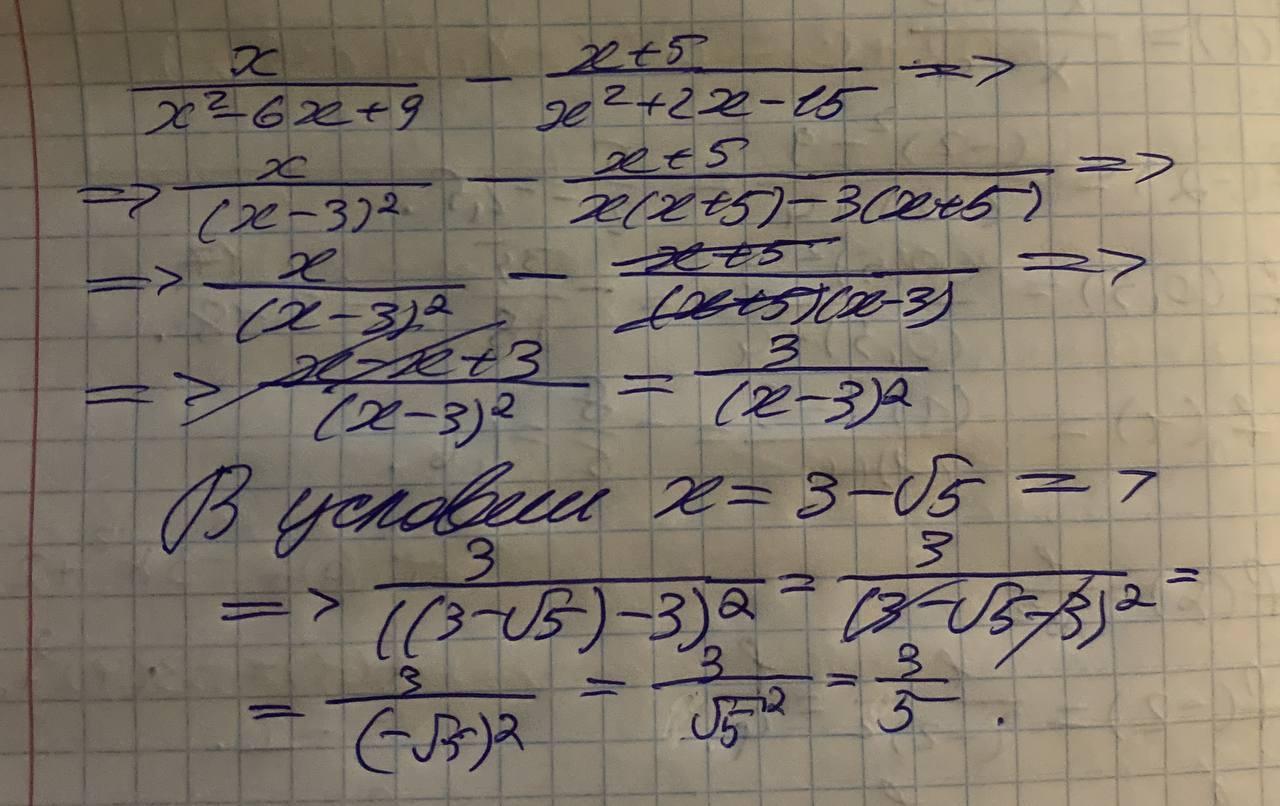 x/(x²-6x+9) - (x+5)/(x²+2x-15) =>
=> x/(x-3)² - (x+5)/(x(x+5)-3(x+5)) =>
=> x/(x-3)² - (x+5)/((x+5)(x-3)) =>
=> (x-x+3)/(x-3)² = 3/(x-3)²
В условии x = 3-√5 =>
=> 3/((3-√5)-3)² = 3/(3-√5-3)² =
= 3/(-√5)² = 3/√5² = 3/5 .